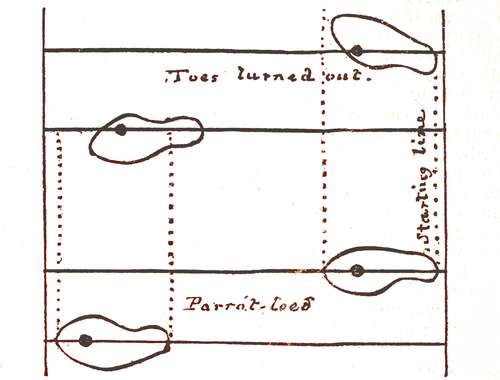 Toes turned out.
Starting line
Parrot-toed